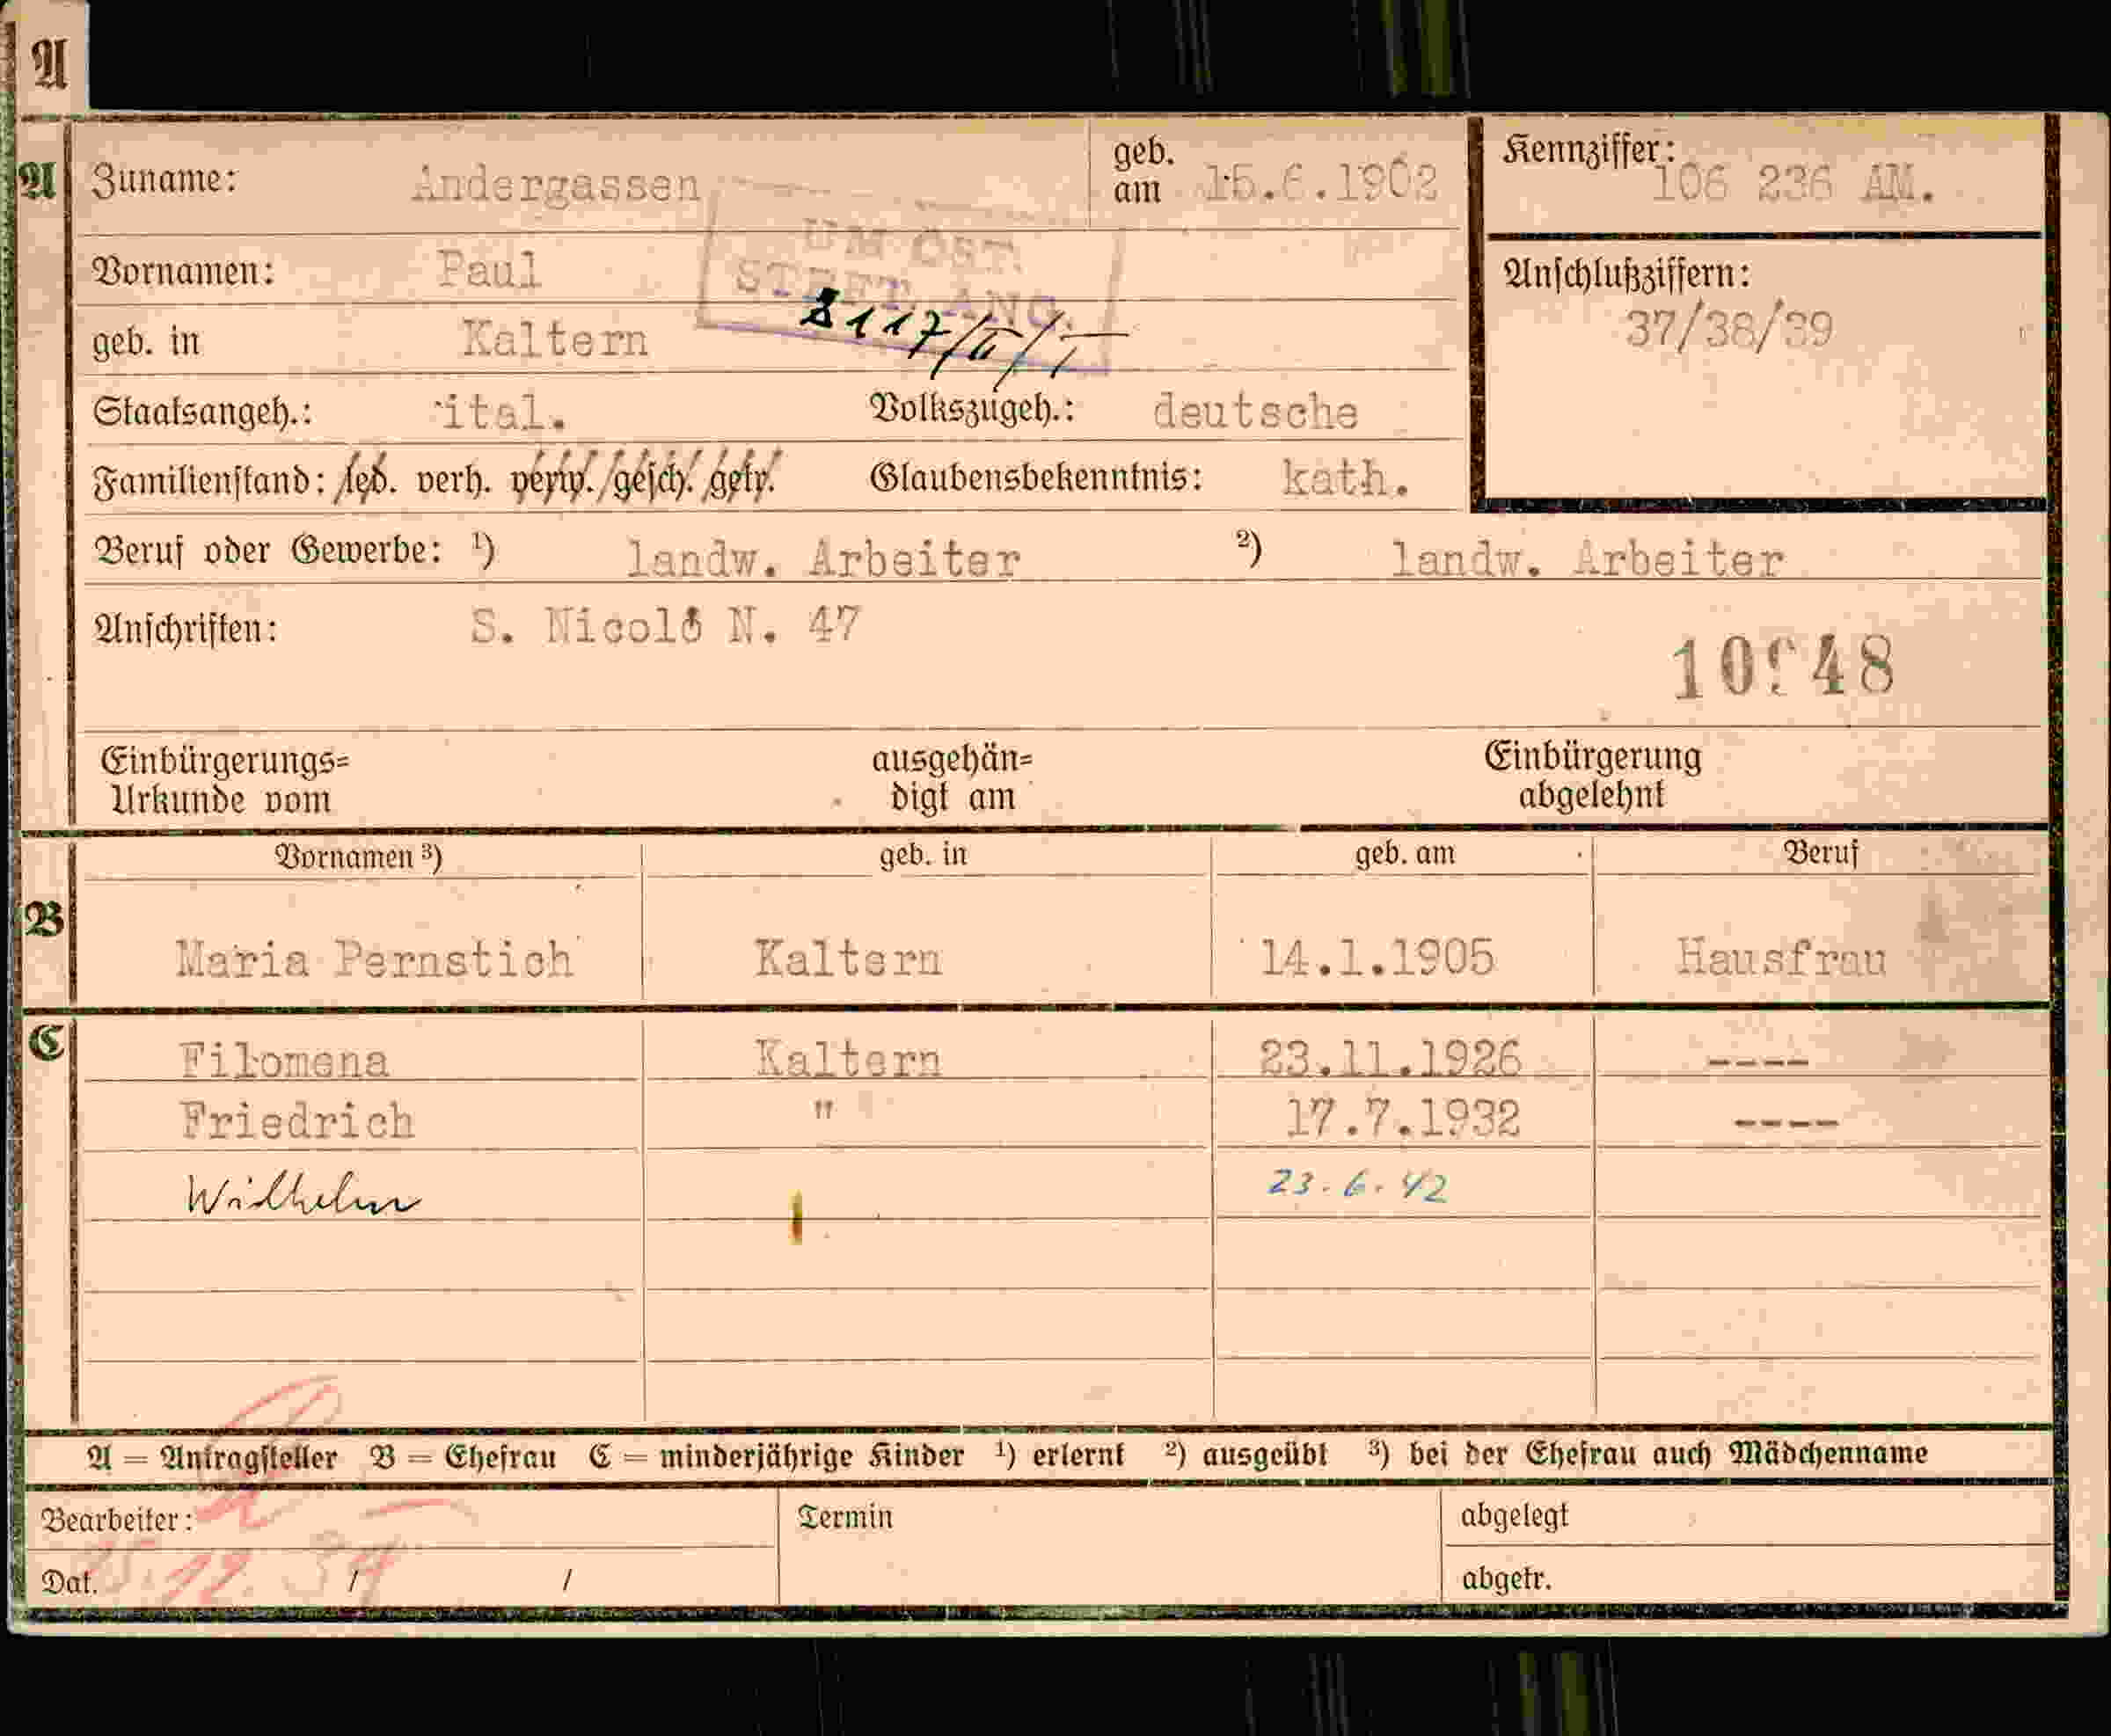 A
A
Zuname: Andergassen geb. am 15.6.1902
Kennziffer: 106 236 AM.
UM ÖST.
STRFT. ANG.
Vornamen: Paul
Anschlußziffern:
37/38/39
geb. in Kaltern
3117/II/I
Staatsangeh.: ital. Volkszugeh.: deutsche
Familienstand: led. verh. verw. gesch. getr. Glaubensbekenntnis: kath.
Beruf oder Gewerbe: ¹) landw. Arbeiter ²) landw. Arbeiter
Anschriften: S. Nicoló N. 47
Einbürgerungs= ausgehän= Einbürgerung
Urkunde vom digt am abgelehnt
Vornamen ³) geb. in geb. am Beruf
B
Maria Pernstich Kaltern 14.1.1905 Hausfrau
C
Filomena Kaltern 23.11.1926 ----
Friedrich " 17.7.1932 ----
Wilhelm 23.6.42
A = Antragsteller B = Ehefrau C = minderjährige Kinder ¹) erlernt ²) ausgeübt ³) bei der Ehefrau auch Mädchenname
Bearbeiter: Termin abgelegt
Dat. / / abgetr.